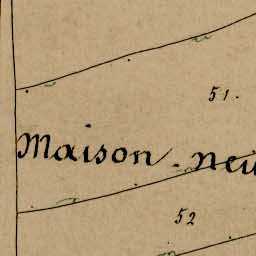 51.
Maison - neu
52